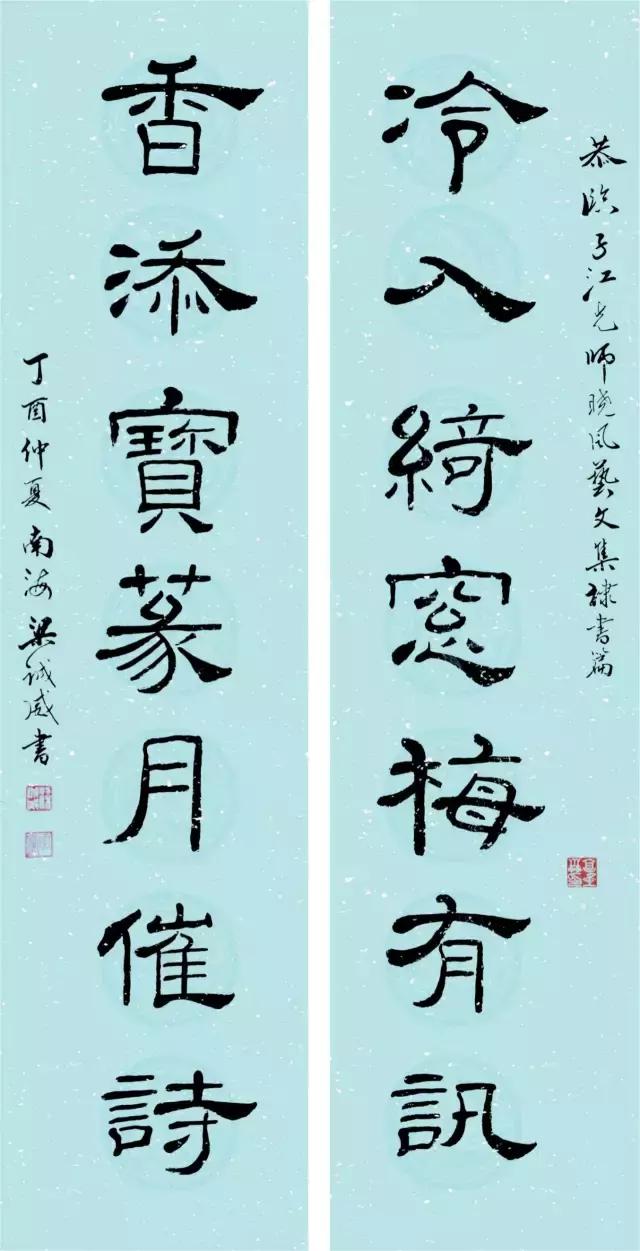 恭臨子江光師曉风藝文集隸書篇
冷入綺窓梅有訊
香添寶篆月催詩
丁酉仲夏南海梁誠威書